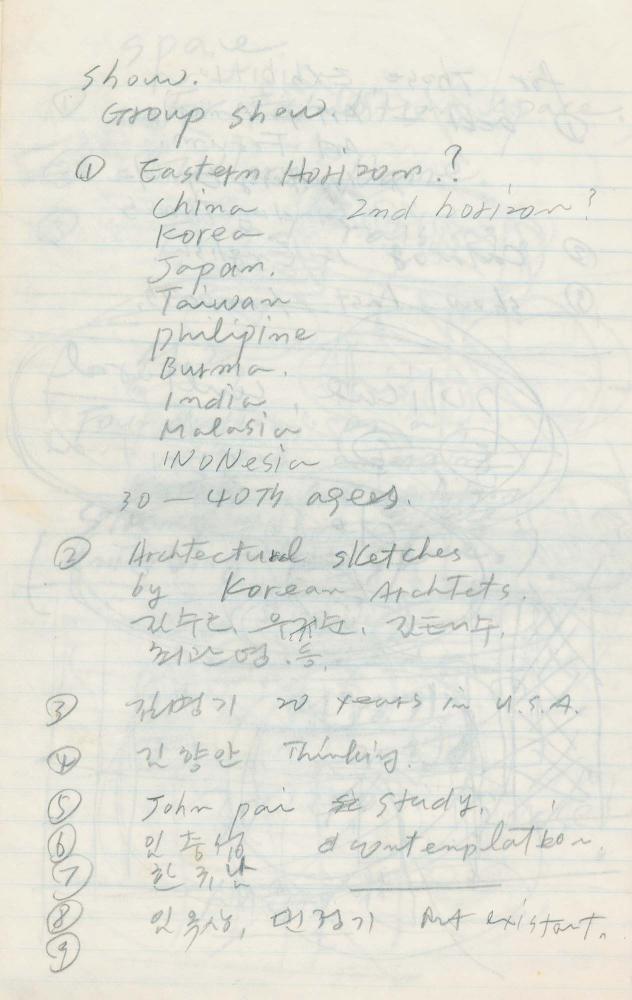 show.
Group show.
① Eastern Horizon.?
China 2nd horizon?
Korea
Japan.
Taiwan
philipine
Burma.
India
Malasia
INDNesia
30 — 40Th agees.
② Archtectural sketches
by Korean Archtets.
김수근, 우규승, 김태수,
최관영.등.
③ 20 years in U.S.A.
④ 김향안 Thinking.
⑤ John pai study.
⑥ 임충섭 contemplatton.
⑦ 한
⑧ 임옥상, 민정기 Art existant.
⑨